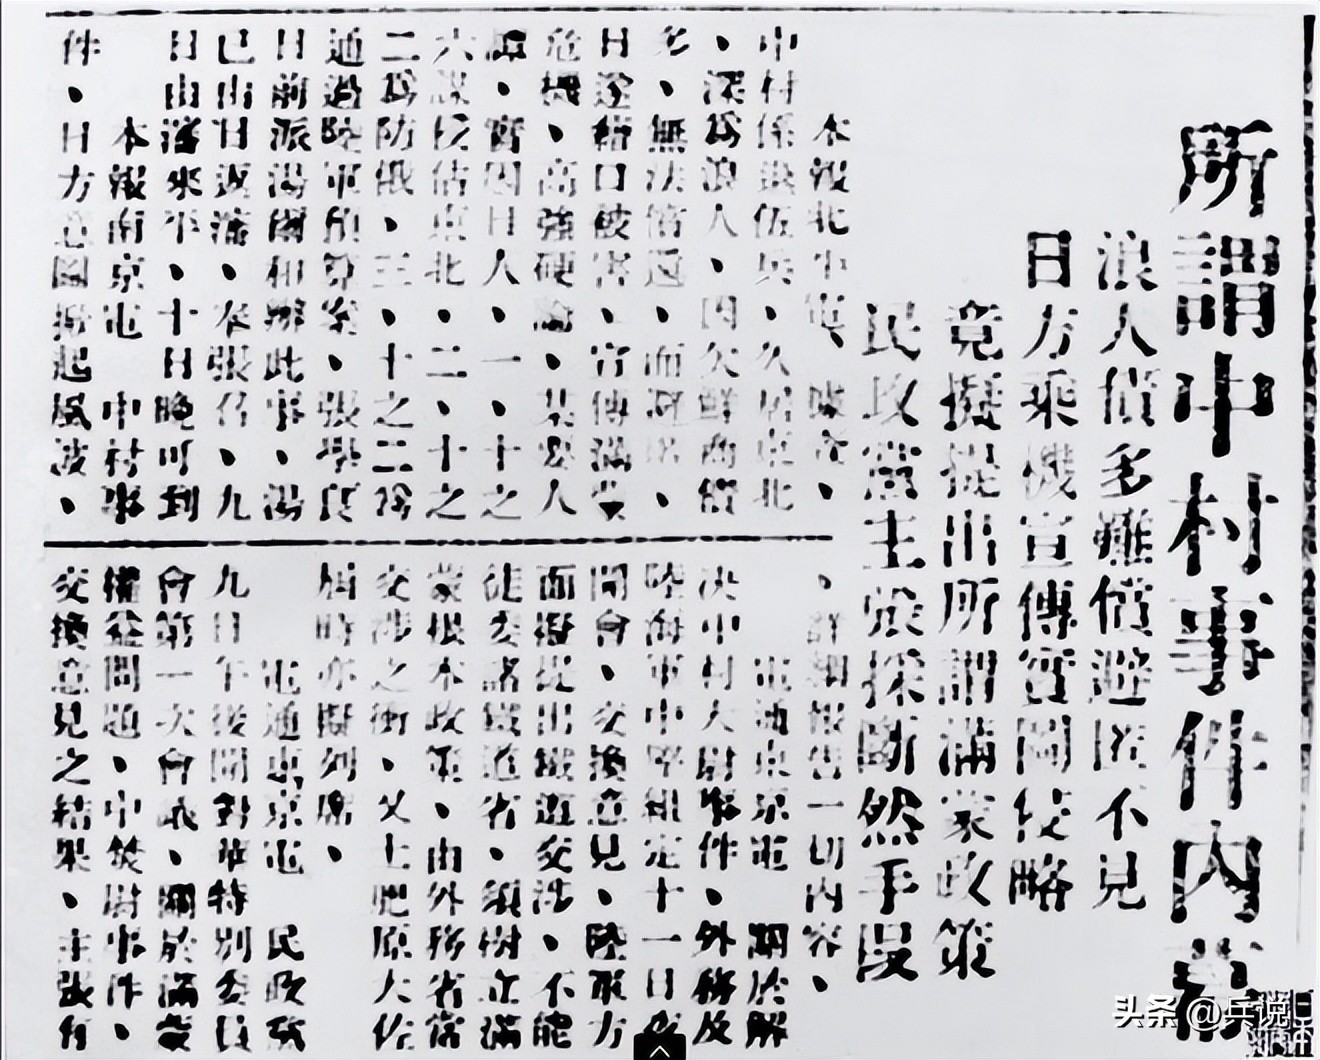 所謂中村事件內幕
浪人債多難償避匿不見
日方乘機宣傳實圖侵略
竟擬提出所謂滿蒙政策
民政黨主張採斷然手段
本報北平電、據查、
中村係退伍兵、久居東北
、深為浪人、因欠鮮商債
多、無法償還、而避、
日遂藉口被害、宣傳滿蒙
危機、高強硬論、某要人
譚、實因日人、一、十之
六謀侵佔東北、二、十之
二為防俄、三、十之二為
通過陸軍預算案、張學良
日前派湯爾和辦此事、湯
已由日返瀋、奉張召、九
日由瀋來平、十日晚可到
本報南京電 中村事
件、日方意圖掀起風波、
、詳細報告一切內容、
電通東京電 關於解
決中村大尉事件、外務及
陸海軍中堅組定十一日
開會、交換意見、陸軍方
面擬提出鐵道交涉、不能
徒委諸鐵道省、須樹立滿
蒙根本政策、由外務省當
交涉之衝、又土肥原大佐
屆時亦擬列席、
電通東京電 民政黨
九日午後開對華特別委員
會第一次會議、關於滿蒙
權益問題、中尉事件、
交換意見之結果、主張有
头条 @兵说